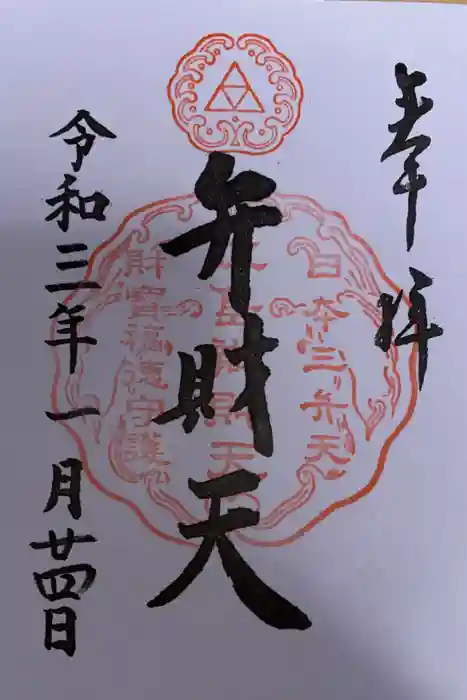 奉拝
日本三弁天
弁財天
財宝福徳守護
令和三年一月廿四日